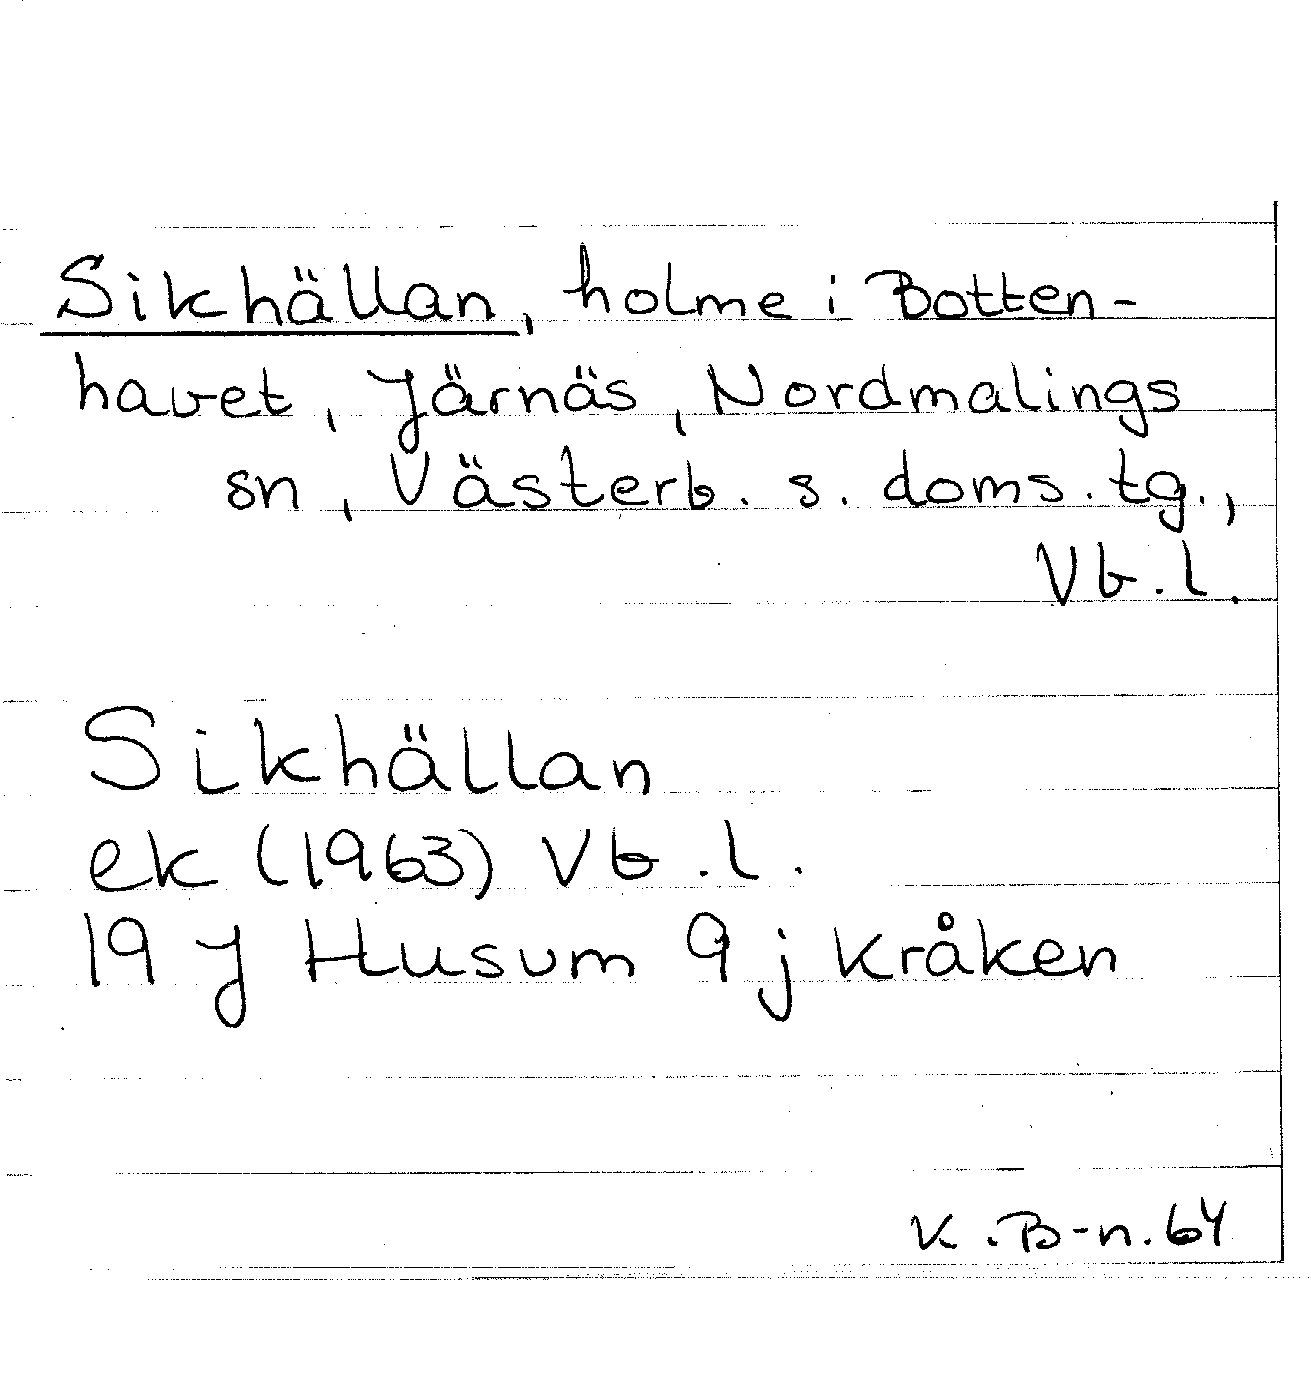 Sikhällan, holme i Botten-
havet, Järnäs, Nordmalings
sn, Västerb. s. doms. tg.,
Vb. l.
Sikhällan
ek (1963) Vb. l.
19 J Husum 9 j Kråken
K. B-n. 64